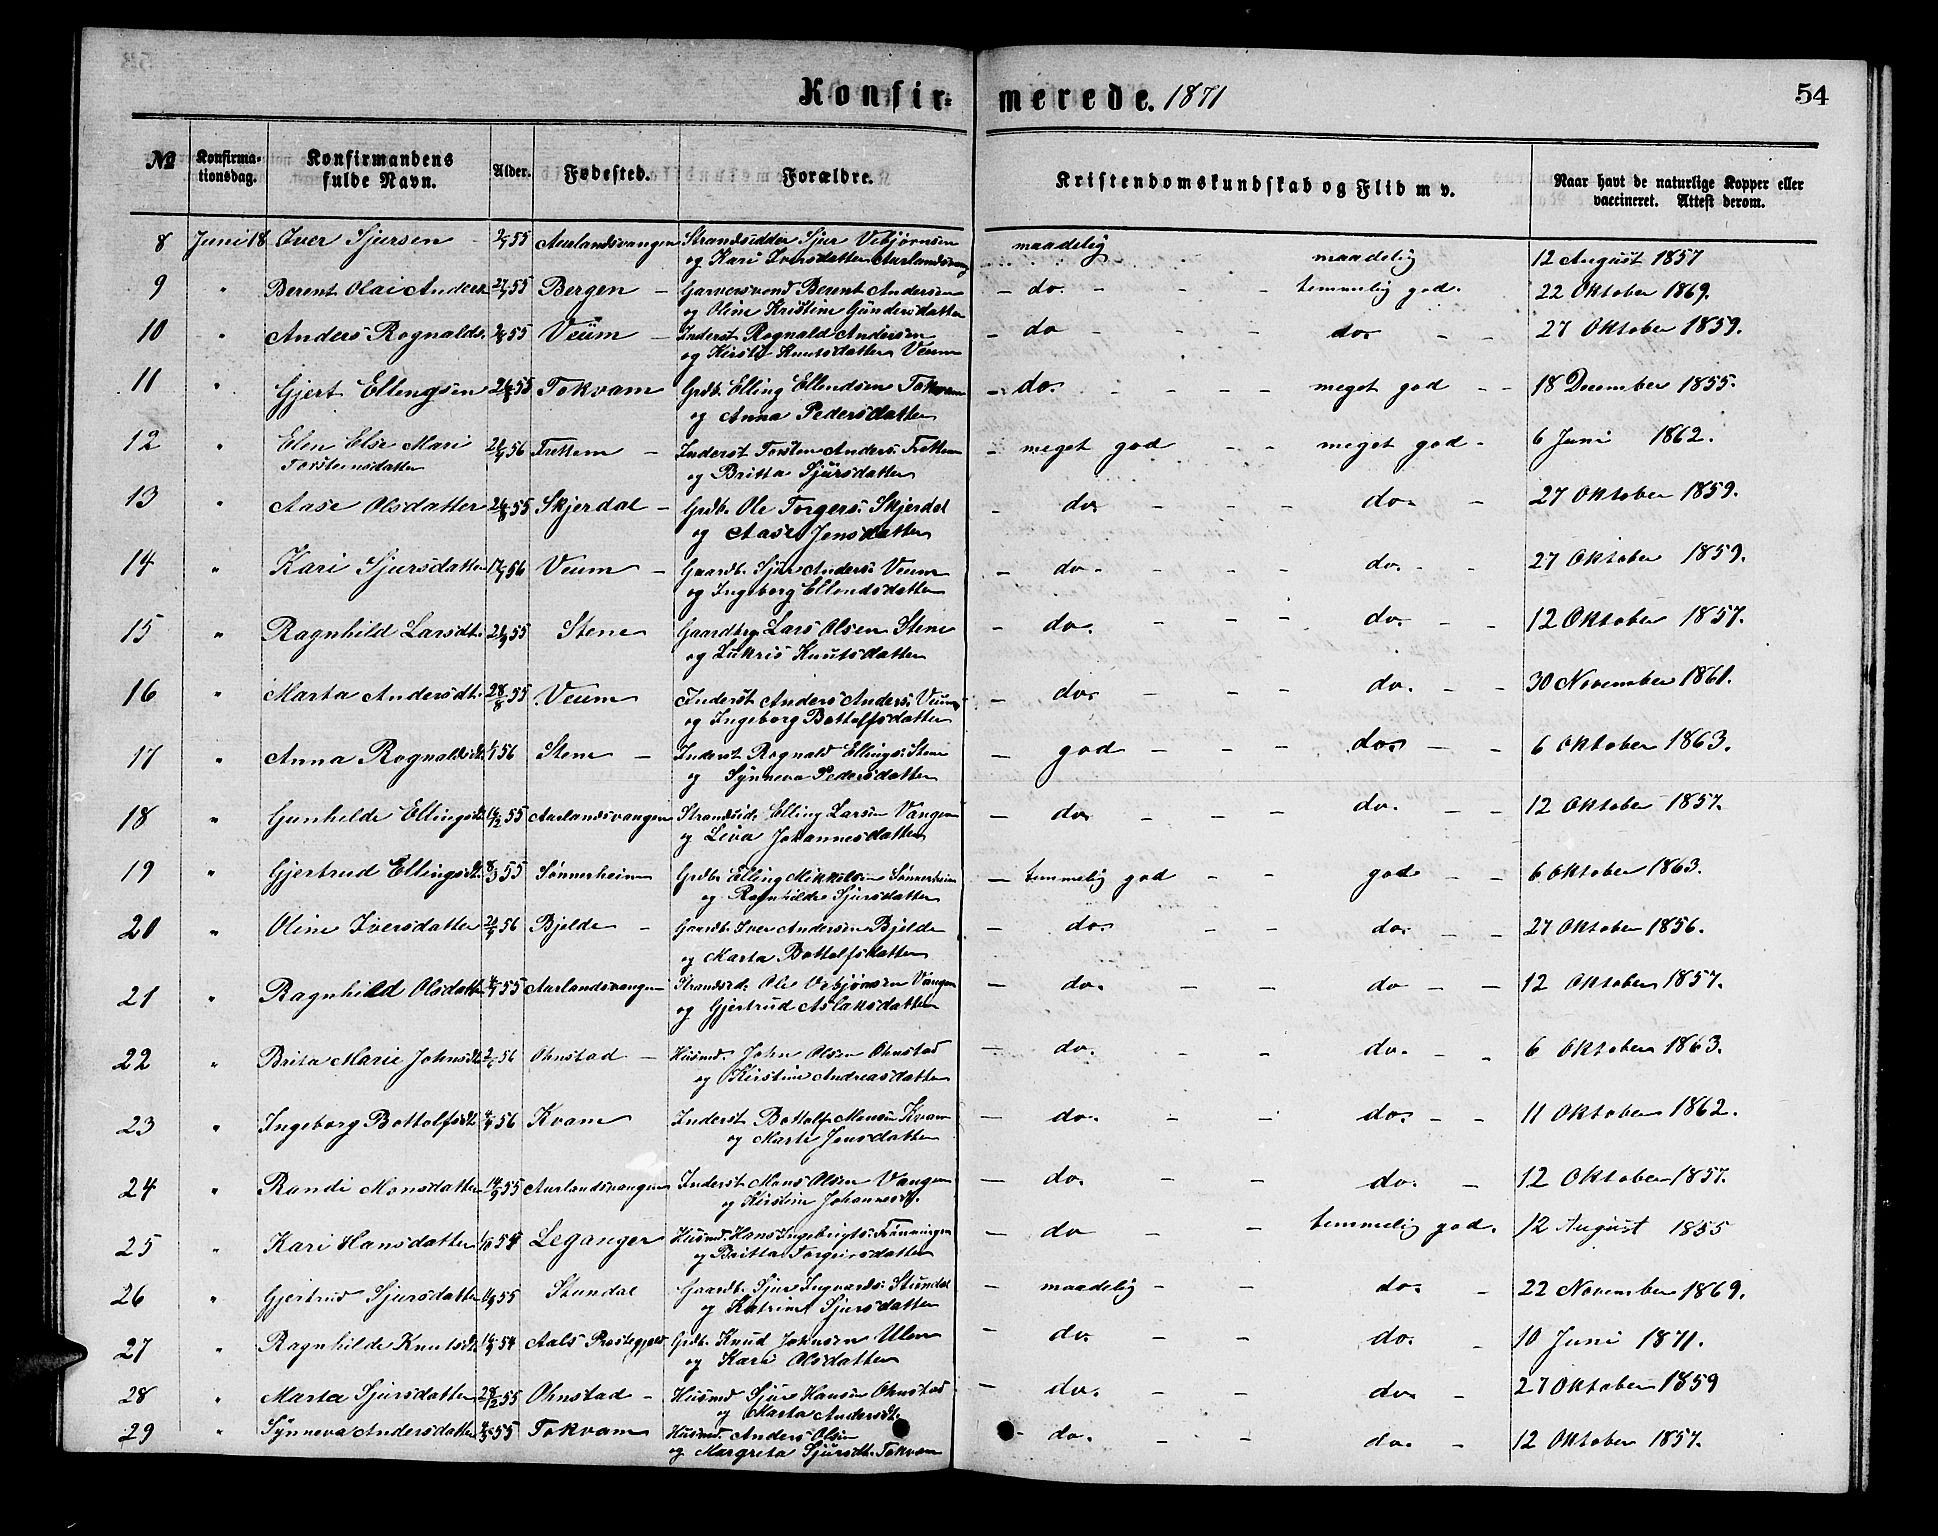 Konfir= merede. 1871 54
№ Konfirma- Konfirmandens Alder. Fødested. Forældre. Kristendomskundskab og Flid m v. Naar havt de naturlige Kopper eller
tionsdag. fulde Navn. vaccineret. Attest derom.
8 Juni 18 Iver Sjursen 55 Aurlandsvangen Strandsidder Sjur Vebjørnsen maadelig maadelig 12 August 1857
og Kari Iversdatter Aurlandsvang
9 " Berent Olai Anders 55 Bergen Garversvend Berent Andersen do. temmelig god. 22 Oktober 1869.
og Oline Kristine Gundersdatter
10 " Anders Rognalds. 55 Veum Inderst Rognald Andersen do do. 27 Oktober 1859.
og Kirsti Knutsdatter Veum
11 " Gjert Ellengsen 55 Tokvam Grdb. Elling Ellendsen Tokvam do. meget god 18 December 1855.
og Anna Pedersdatter
12 " Elen Else Mari 56 Frettem Inderst Torsten Anders. Frettem meget god meget god 6 Juni 1862.
Torsteinsdatter og Britta Sjursdatter
13 " Aase Olsdatter 55 Skjerdal Grdb. Ole Torgers. Skjerdal do. do. 27 Oktober 1859.
og Aase Jensdatter
14 " Kari Sjursdatter 56 Veum Gaardb. Sjur Anders. Veum do. do. 27 Oktober 1859.
og Ingeborg Ellendsdatter
15 " Ragnhild Larsdt. 55 Stene Gaardbrg. Lars Olsen Stene do. do. 12 Oktober 1857.
og Lukris Knutsdatter
16 " Marta Andersdt. 28/8 55 Veum Inderst Anders Anders. Veum do. do. 30 November 1861.
og Ingeborg Bottolfsdatter
17 " Anna Rognaldsdt. 56 Stene Inderst Rognald Ellings. Stene god do. 6 Oktober 1863.
og Synneva Pedersdatter
18 " Gunhilde Ellingsdt. 55 Aurlandsvangen Strandsid. Elling Larsen Vangen do. do. 12 Oktober 1857.
og Leva Johannesdatter
19 " Gjertrud Ellingsdt. 8/3 55 Sønnerheim Grdb. Elling Mikkelsen Sønnerheim temmelig god god 6 Oktober 1863.
og Ragnhilde Sjursdatter
20 " Oline Iversdatter 56 Bjelde Gaardb. Iver Andersen Bjelde do. do. 27 Oktober 1856.
og Marta Bottolfsdatter
21 " Ragnhild Olsdatter 55 Aurlandsvangen Strandsd. Ole Vebjørnsen Vangen do. do 12 Oktober 1857.
og Gjertrud Aslaksdatter
22 " Brita Marie Johnsdt. 56 Ohnstad Husmd. John Olsen Ohnstad do. do. 6 Oktober 1863.
og Kirstine Andreasdatter
23 " Ingeborg Bottolfsdt. 56 Kvam Inderst Bottolf Monsen Kvam do. do. 11 Oktober 1862.
og Marte Jensdatter
24 " Randi Monsdatter 55 Aurlandsvangen Inderst Mons Olsen Vangen do. do. 12 Oktober 1857.
og Kirstine Johannesdt.
25 " Kari Hansdatter 54 Leganger Husmd. Hans Ingebrigts. Frønningen do temmelig god. 12 August 1855
og Britta Torgeirsdatter
26 " Gjertrud Sjursdatter 55 Stundal Gaardb. Sjur Ingvards. Stundal maadelig do. 22 November 1869.
og Katrine Sjursdatter
27 " Ragnhilde Knutsdt. 54 Aals Prestegjeld Grdb. Knud Johnsen Ulen do. do. 10 Juni 1871.
og Kari Olsdatter
28 " Marta Sjursdatter 28/12 55 Ohnstad Husmd Sjur Hansen Ohnstad do. do. 27 Oktober 1859
og Marta Andersdt.
29 " Synneva Andersdatter 55 Tokvam Husmd. Anders Olsen do. do. 12 Oktober 1857.
og Margreta Sjursdt. Tokvam